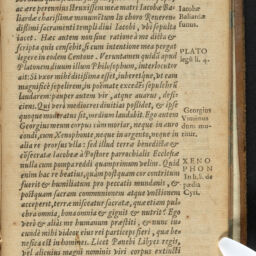 ac perennius struxissem mea matri Iacobæ Ba-
liardæ charissimæ monumentum In choro Reueren-
dissimi sacramenti templi diui Iacobi, vbi sepulta
iacet. Hæc autem non sine ratione à me dicta &
scripta quis censebit, si cum intentione mea pergat
legere in eodem Centone. Veruntamen quid si apud
Platonem diuinum illum Philosophum, interlocutor
ait: Si vxor mihi ditissima esset, iuberetque, vt eam
magnificè sepelirem, in poëmate excedens sepulchrũ
laudarem: pauper autem vir, atque auarus, defi-
ciens. Qui verò mediocres diuitias possidet, & ipse
quoque moderatus sit, mediam laudabit. Ego autem
Georgius meum corpus
cundi, cum Xenophonte, neque in argento, neque in
alia re prorsus vlla: sed illud terræ benedictæ &
cõsecratæ locabo à Pastore parrochialis Ecclesiæ
nulla cum pompa reddi quamprimum velim. Quid
enim hac re beatius, quàm postquam cor contritum
fuerit & humiliatum pro peccatis mundanis, &
postquam sacram communionem atque vnctionem
acceperit, terræ misceatur sacratæ, quæ etiam pul-
chra omnia, bona omnia & gignit & nutrit? Ego
verò & aliàs in humanum præsepii, & nunc iu-
cundè mihi videor eius rei particeps fieri, quæ be-
nefica est in homines. Licet Panebi Libyes regis,
vel alicuius magni nominis viri corpus extincti
Iacobæ
Baliardæ
funus.
PLATO
legũ li. 4.
Georgius
Viuinus
dum mo-
ritur.
XENO
PHON
In li. 8. de
pædia
Cyri.